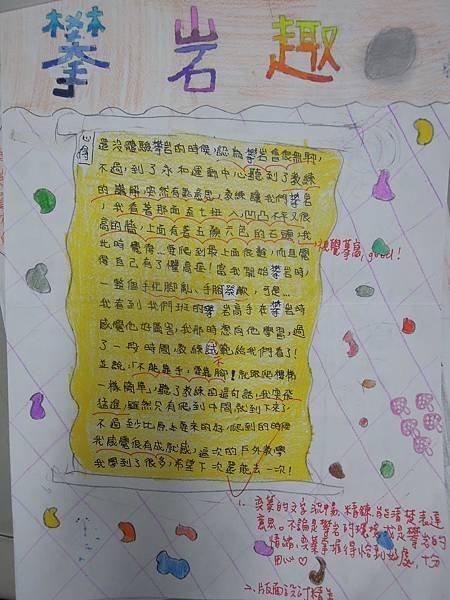 攀岩趣
心得
還沒體驗攀岩的時候,認為攀岩會很無聊,
不過,到了永和運動中心聽到了教練
的講解,突然有點意思,教練讓我們攀岩
,我看著那面七扭八凹凸不平又很
高的牆,上面有著五顏六色的石頭,我
此時覺得…要爬到最上面很難,而且覺
得自己有了懼高症,當我開始攀岩時,
一整個手忙腳亂、手腳發軟,可是…
我看到我們班的攀岩高手在攀岩時
感覺他好厲害,我那時想向他學習,過
了一段時間,教練試範給我們看了!
並說:「不能靠手,要靠腳!就跟爬樓梯
一樣簡單,聽了教練的這句話,我突飛
猛進,雖然只有爬到中間就到下來了,
不過至少比原上來的好,爬到的時候
我感覺很有成就感,這次的戶外教學
我學到了很多,希望下次還能去一次!
視覺摹寫,good!
示
1. 奕蓁的文字流暢、精鍊,能清楚表達
意思。不論是攀岩的環境或是攀岩的
情緒,奕蓁掌握得恰到好處,十分
用心♡
2. 版面設計